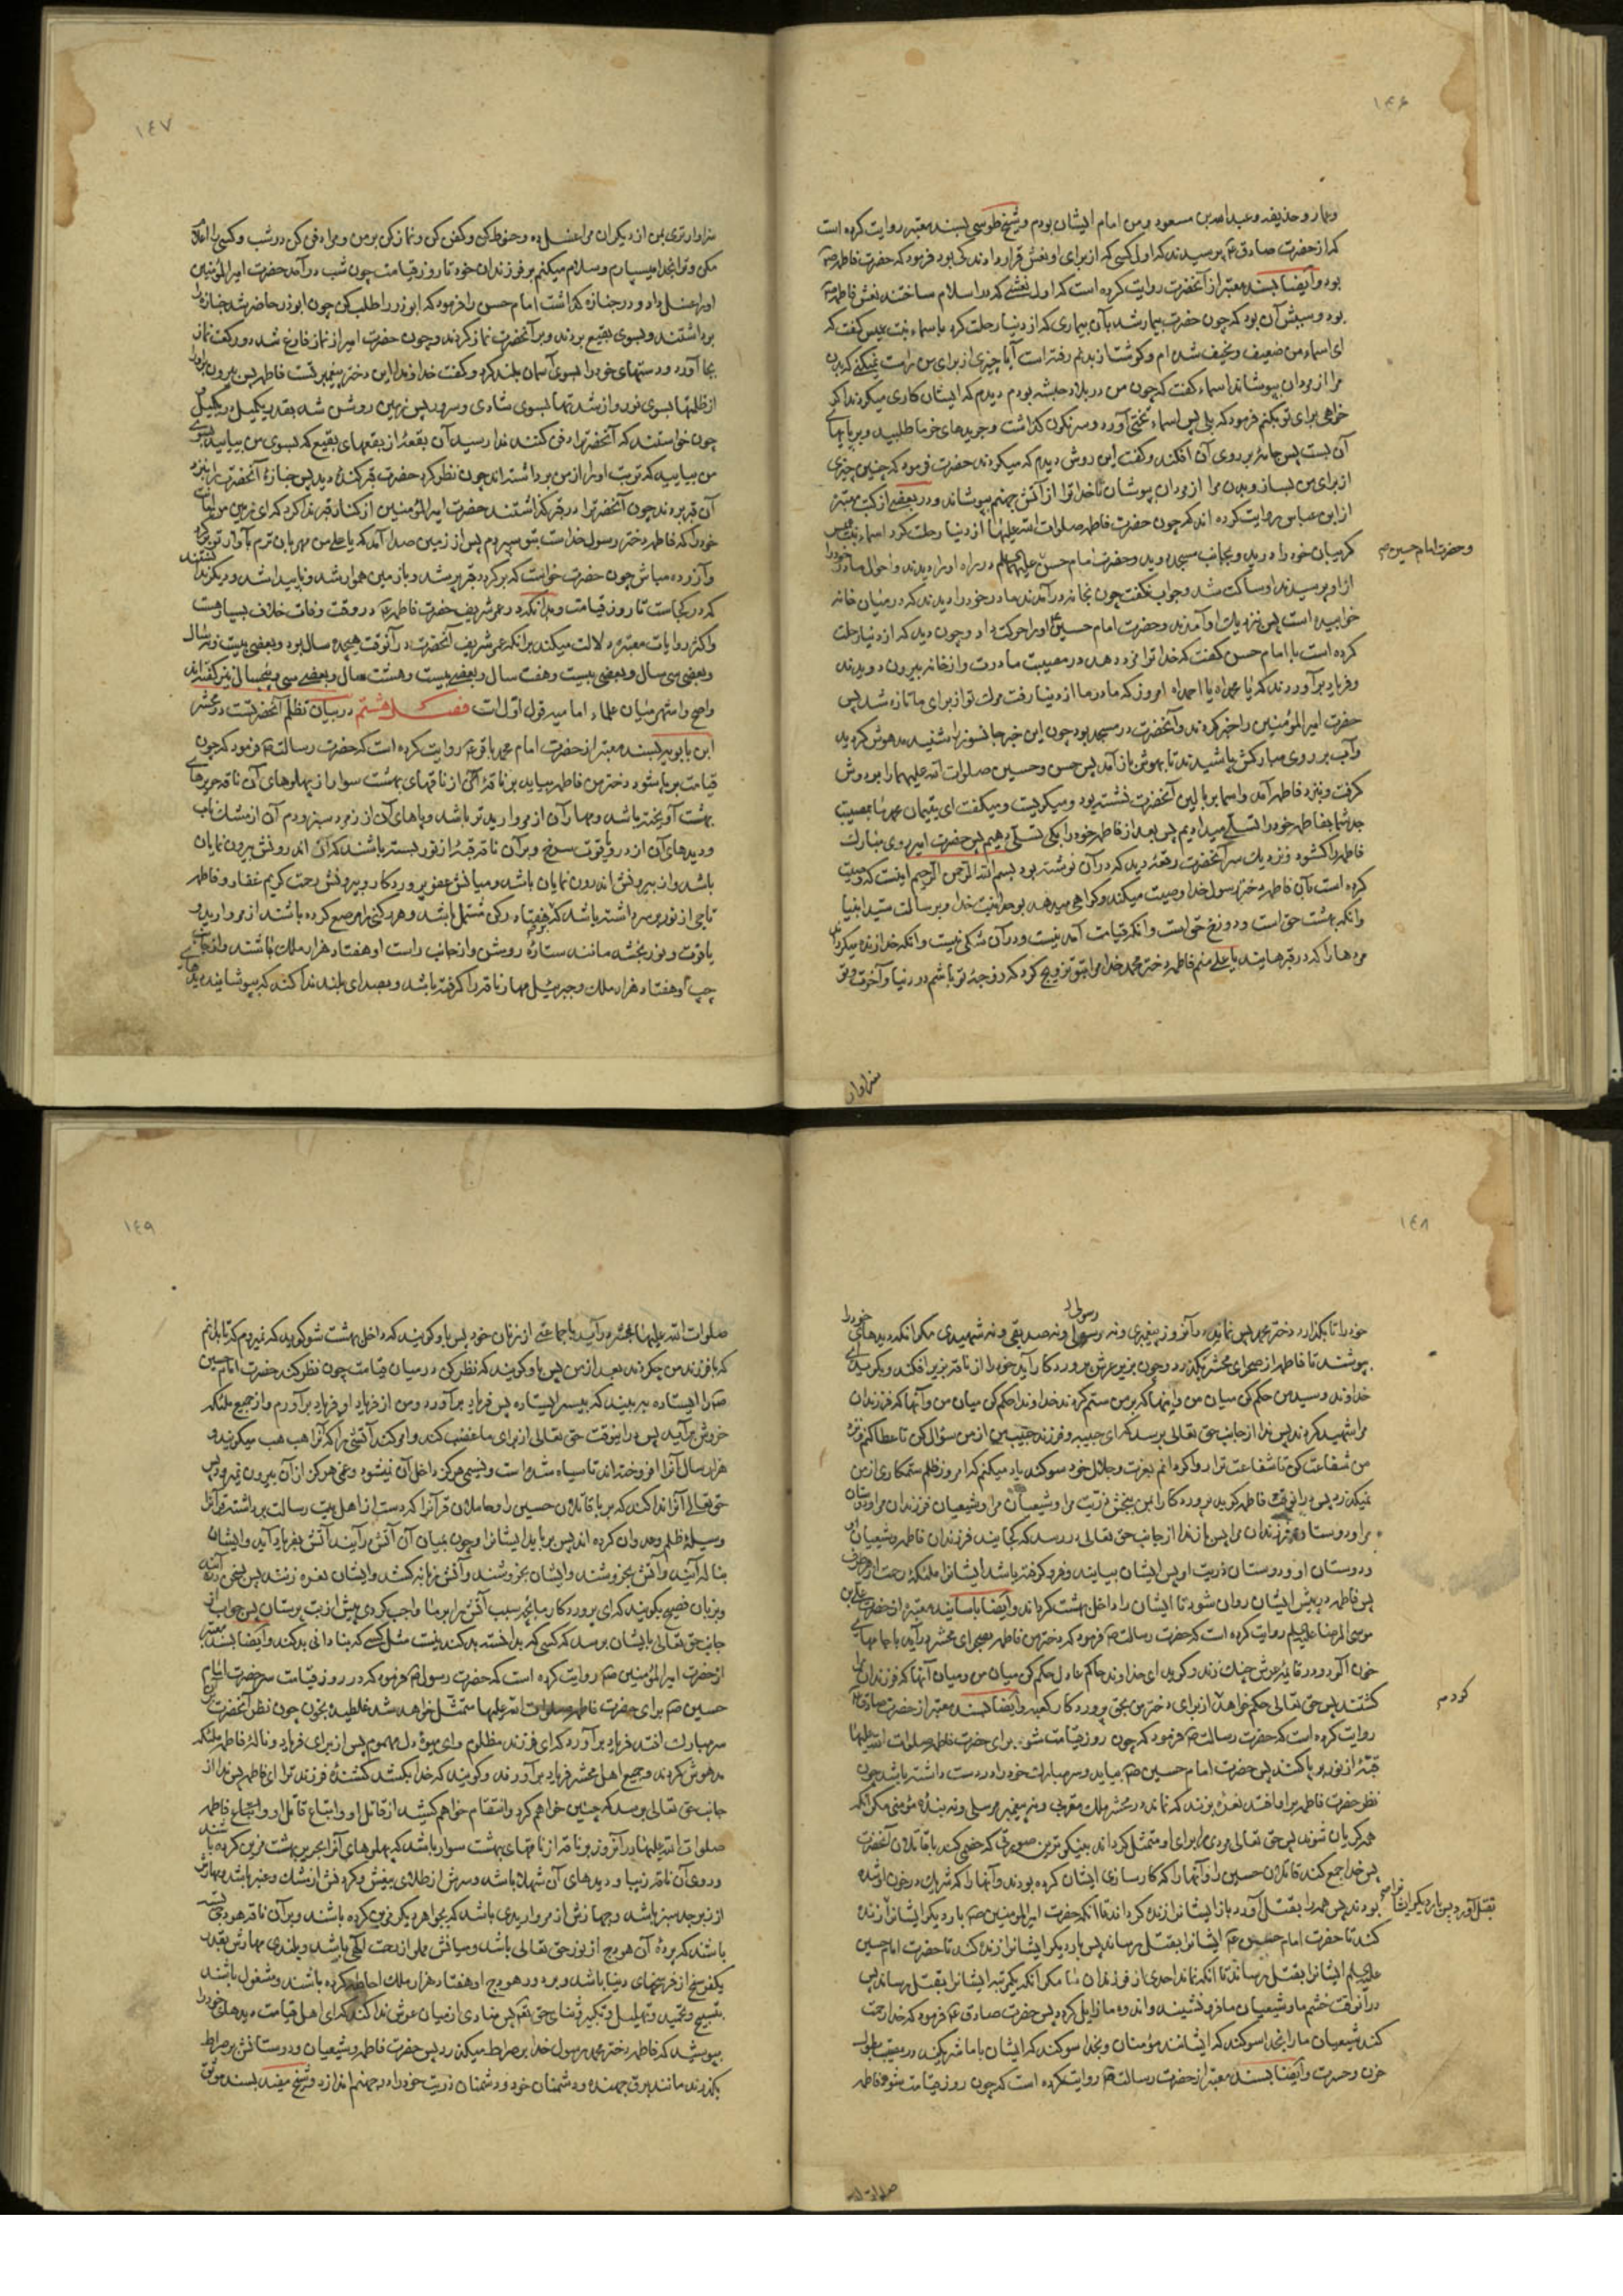 ۱۴۶
وعمار و حذیفه و عبدالله بن مسعود و من امام ایشان بودم و شیخ طوسی بسند معتبر روایت کرده است
که از حضرت صادق ع پرسیدند که اول کسی که از برای او نعش قرار دادند کی بود فرمود که حضرت فاطمه ص
بود و ایضا بسند معتبر از آنحضرت روایت کرده است که اول نعشی که در اسلام ساختند نعش فاطمه ص
بود و سببش آن بود که چون حضرت بیمار شد بآن بیماری که از دنیا رحلت کرد باسماء بنت عمیس گفت که
ای اسماء من ضعیف و نحیف شده ام و گوشت از بدنم رفته است آیا چیزی از برای من راست نمیکنی که بدن
مرا از مردان بپوشاند اسماء گفت که چون من در بلاد حبشه بودم دیدم که ایشان کاری میکردند اگر
خواهی برای تو بکنم فرمود که بلی پس اسماء تختی آورد و سرنگون گذاشت و جریدهای خرما طلبید و بر پایهای
آن بست پس جامۀ بر روی آن افکند و گفت این روش دیدم که میکردند حضرت فرمود که چنین چیزی
از برای من بساز و بدن مرا از مردان بپوشان تا خدا ترا از آتش جهنم بپوشاند و در بعضی از کتب معتبره
از ابن عباس روایت کرده اند که چون حضرت فاطمه صلوات الله علیها از دنیا رحلت کرد اسماء بنت عمیس
گریبان خود را درید و بجانب مسجد دوید و حضرت امام حسن علیهما السلم در راه او را دیدند و احوال مادر خود را
و حضرت امام حسین ص
از او پرسیدند او ساکت شد و جواب نگفت چون بخانه در آمدند مادر خود را دیدند که در میان خانه
خوابیده است پس نزدیك او آمدند و حضرت امام حسین ع او را حرکت داد و چون دید که از دنیا رحلت
کرده است با امام حسن گفت که خدا ترا مزد دهد در مصیبت مادرت و از خانه بیرون دویدند
و فریاد بر آوردند که یا محمداه یا احمداه امروز که مادر ما از دنیا رفت مرك تو از برای ما تازه شد پس
حضرت امیر المؤمنین را خبر کردند و آنحضرت در مسجد بود چون این خبر جانسوز را شنید مدهوش گردید
و آب بر روی مبارکش پاشیدند تا بهوش باز آمد پس حسن و حسین صلوات الله علیهما را بر دوش
گرفت و بنزد فاطمه آمد و اسما بر بالین آنحضرت نشسته بود و میگریست و میگفت ای یتیمان محمد ما بمصیبت
جد شما بفاطمه خود را تسلی میدادیم پس بعد از فاطمه خود را بکی تسلی دهیم پس حضرت امیر روی مبارك
فاطمه را گشود و نزدیك سر آنحضرت رقعۀ دید که در آن نوشته بود بسم الله الرحمن الرحیم اینست که وصیت
کرده است بآن فاطمه دختر رسول خدا وصیت میکند و گواهی میدهد بوحدانیت خدا و برسالت سید انبیا
و آنکه بهشت حق است و دوزخ حق است و آنکه قیامت آمدنیست و در آن شکی نیست و آنکه خدا زنده میگرداند
مردها را که در قبرهایند یا علی منم فاطمه دختر محمد خدا مرا بتو تزویج کرد که زوجۀ تو باشم در دنیا و آخرت و تو
سزاوار
۱٤۷
سزاوارتری بمن از دیگران مرا غسل ده و حنوط کن و کفن کن و نماز کن بر من و مرا دفن کن در شب و کسی را اعلام
مکن و ترا بخدا میسپارم و سلام میکنم بر فرزندان خود تا روز قیامت چون شب در آمد حضرت امیر المؤمنین
او را غسل داد و در جنازه گذاشت امام حسن را فرمود که ابو ذر را طلب کن چون ابوذر حاضر شد جنازه را
برداشتند و بسوی بقیع بردند و بر آنحضرت نماز کردند و چون حضرت امیر از نماز فارغ شد دو رکعت نماز
بجا آورد و دستهای خود را بسوی آسمان بلند کرد و گفت خداوندا این دختر پیغمبر تست فاطمه پس بیرون بر او را
از ظلمتها بسوی نور
چون خواستند که آنحضرترا دفن کنند ندا رسید آن بقعۀ از بقعهای بقیع که بسوی من بیایید بسوی
من بیایید که تربت او را از من برداشته اند چون نظر کرد حضرت قبر کندۀ دید پس جنازۀ آنحضرت را بنزد
آن قبر بردند چون آنحضرترا در قبر گذاشتند حضرت امیر المؤمنین از کنار قبر ندا کرد که ای زمین من امانت
خود را که فاطمه دختر رسول خداست بتو سپردم پس از زمین صدا آمد که یا علی من مهربان ترم باو از تو برگرد
و آزرده مباش چون حضرت خواست که برگردد قبر پر شد و با زمین هموار شد و ناپیدا شد و دیگر ندانستند
که در کجاست تا روز قیامت و بدانکه در عمر شریف حضرت فاطمه ع در وقت وفات خلاف بسیار هست
و اکثر روایات معتبره دلالت میکند بر آنکه عمر شریف آنحضرت در آنوقت هیجده سال بود و بعضی بیست و نه سال
و بعضی سی سال و بعضی بیست و هفت سال و بعضی بیست و هشت سال و بعضی سی و پنجسال نیز گفته اند
واصح واشهر میان علماء امامیه قول اول است فصل هشتم در بیان تظلم آنحضرتست در محشر
ابن بابویه بسند معتبر از حضرت امام محمد باقر ع روایت کرده است که حضرت رسالت ص فرمود که چون
قیامت بر پا شود دختر من فاطمه بیاید بر ناقۀ از ناقهای بهشت سوار از پهلوهای آن ناقه حریرهای
بهشت آویخته باشد و مهار آن از مروارید تر باشد و پاهای آن از زمرد سبز و دم آن از مشك ناب
و دیدهای آن از دو یاقوت سرخ و بر آن ناقه قبۀ از نور بسته باشند که از اندرونش بیرون نمایان
باشد و از بیرونش اندرون نمایان باشد و میانش عفو پروردگار و بیرونش رحمت کریم غفار و فاطمه
تاجی از نور بر سر داشته باشد که بهفتاد رکن مشتمل باشد و هر رکنی را مرصع کرده باشند از مروارید و
یاقوت و نور بخشد مانند ستارۀ روشن و از جانب راست او هفتاد هزار ملك باشند و از جانب
چپ او هفتاد هزار ملك و جبرئیل مهار ناقه را گرفته باشد و بصدای بلند ندا کند که بپوشانید دیدهای
۱٤۸
خود را تا بگذرد دختر محمد پس نماند در آنروز پیغمبری و نه رسولی و نه صدیقی و نه شهیدی مگر آنکه دیدهای خود را
رسولی
بپوشند تا فاطمه از صحرای محشر بگذرد و چون بزیر عرش پروردگار آید خود را از ناقه بزیر افکند و بگوید ای
خداوند و سید من حکم کن میان من و اینها که بر من ستم کردند خداوندا حکم کن میان من و آنها که فرزندان
مرا شهید کردند پس ندا از جانب حق تعالی برسد که ای حبیبه و فرزند حبیب من از من سؤال کن تا عطا کنم و نزد
من شفاعت کن تا شفاعت ترا روا گردانم بعزت و جلال خود سوگند یاد میکنم که امروز ظلم ستمکاری از من
نمیگذرد پس در آنوقت فاطمه گوید پروردگارا بمن ببخش ذریت مرا و شیعیان مرا و شیعیان فرزندان مرا و دوستان
مرا و دوستان فرزندان مرا پس باز ندا از جانب حق تعالی در رسد که کجایند فرزندان فاطمه و شیعیان او
و دوستان او و دوستان ذریت او پس ایشان بیایند و فرو گرفته باشد ایشانرا ملئکۀ رحمت از هر طرف
پس فاطمه در پیش ایشان روان شود تا ایشان را داخل بهشت گرداند و ایضا باسانید معتبره از حضرت علی بن
موسی الرضا علیه السلم روایت کرده است که حضرت رسالت ص فرمود که دختر من فاطمه بصحرای محشر در آید با جامهای
خون آلود و در قایمۀ عرش چنك زند و گوید ای خداوند حاکم عادل حکم کن میان من و میان آنها که فرزندان مرا
کشتند پس حق تعالی حکم خواهد کرد از برای دختر من بحق پروردگار کعبه و ایضا بسند معتبر از حضرت صادق ع
کرد ص
روایت کرده است که حضرت رسالت ص فرمود که چون روز قیامت شود برای حضرت فاطمه صلوات الله علیها
قبۀ از نور بر پا کنند پس حضرت امام حسین ص بیاید و سر مبارك خود را در دست داشته باشد چون
نظر حضرت فاطمه بر او افتد نعرۀ بزند که نماند در محشر ملك مقربی و نه پیغمبر مرسلی و نه بندۀ مؤمنی مگر آنکه
همه گریان شوند پس حق تعالی مردی را برای او متمثل گرداند به نیکوترین صورتی که خصمی کند با قاتلان آنحضرت
پس خدا جمع کند قاتلان حسین را و آنها را که کار سازی ایشان کرده بودند و آنها را که شریك در خون او شده
بودند پس همه را بقتل آورد و باز ایشانرا زنده گرداند تا آنکه حضرت امیر المؤمنین ص بار دیگر ایشانرا زنده
بقتل آورد پس بار دیگر ایشانرا ص
کند تا حضرت امام حسن ع ایشانرا بقتل رساند پس بار دیگر ایشانرا زنده کند تا حضرت امام حسین
علیه السلم ایشانرا بقتل رساند تا آنکه نماند احدی از فرزندان ما مگر آنکه یکمرتبه ایشانرا بقتل رساند پس
در آنوقت خشم ما و شیعیان ما فرو نشیند و اندوه ما زایل گردد پس حضرت صادق ع فرمود که خدا رحمت
کند شیعیان ما را بخدا سوگند که ایشانند مؤمنان و بخدا سوگند که ایشان با ما شریکند در مصیبت بطول
حزن و حسرت و ایضا بسند معتبر از حضرت رسالت ص روایت کرده است که چون روز قیامت شود فاطمه
صلوات الله
۱٤۹
صلوات الله علیها بمحشر در آید با جماعتی از زنان خود پس باو گویند که داخل بهشت شو گوید که نمیروم که تا بدانم
که با فرزند من چه کردند بعد از من پس باو گویند که نظر کن در میان قیامت چون نظر کند حضرت امام حسین
ص را ایستاده ببیند که بیسر ایستاده پس فریاد برآورد و من از فریاد او فریاد بر آورم و از جمیع ملئکه
خروش برآید پس در اینوقت حق تعالی از برای ما غضب کند و امر کند آتشی را که آنرا هب هب میگویند و
هزار سال آنرا افروخته اند تا سیاه شده است و نسیمی هرگز داخل آن نمیشود و غمی هرگز از آن بیرون نمیرود پس
حق تعالی آنرا ندا کند که بر با قاتلان حسین را و حاملان قرآنرا که دست از اهل بیت رسالت برداشته قرآنرا
وسیلۀ ظلم و عدوان کرده اند پس بر باید ایشانرا و چون بمیان آن آتش در آیند آتش بفریاد آید و ایشان
بناله آیند و آتش بخروشد و ایشان بخروشند و آتش زبانه کشد و ایشان نعره زنند پس بسخن آیند
و بزبان فصیح بگویند که ای پروردگار ما بچه سبب آتش را بر ما واجب کردی پیش از بت پرستان پس جواب از
جانب حق تعالی بایشان برسد که کسی که دانسته بد کند نیست مثل کسی که بنادانی بد کند و ایضا بسند معتبر
از حضرت امیر المؤمنین ص روایت کرده است که حضرت رسول ص فرمود که در روز قیامت سر حضرت امام
حسین ص برای حضرت فاطمه صلوات الله علیها متمثل خواهد شد غلطیده بخون چون نظر آنحضرت بر آن
سر مبارك افتد فریاد بر آورد که ای فرزند مظلوم وای میوۀ دل مهموم پس از برای فریاد و نالۀ فاطمه ملئکه
مدهوش گردند و جمیع اهل محشر فریاد بر آورند و گویند که خدا بکشد کشندۀ فرزند ترا ای فاطمه پس ندا از
جانب حق تعالی برسد که چنین خواهم کرد و انتقام خواهم کشید از قاتل او و اتباع قاتل او و اتباع فاطمه
صلوات الله علیها در آنروز بر ناقه از ناقهای بهشت سوار باشد که پهلوهای آنرا بحریر بهشت مزین کرده باشند
و روی آن ناقه زیبا و دیدهای آن شهلا باشد و سرش از طلای بیغش و گردنش از مشك و عنبر باشد و مهارش
از زبرجد سبز باشد و جهازش از مرواریدی باشد که بجواهر دیگر مزین کرده باشند و بر آن ناقه هودجی بسته
باشند که پردۀ آن هودج از نور حق تعالی باشد و میانش مملو از رحمت الهی باشد و بلندی مهارش بقدر
یکفرسخ از فرسخهای دنیا باشد و بر دور هودج او هفتاد هزار ملك احاطه کرده باشند و مشغول باشند
بتسبیح و تحمید و تهلیل و تکبیر و ثنای حق تعالی پس منادی از میان عرش ندا کند که ای اهل قیامت دیدهای خود را
بپوشید که فاطمه دختر محمد رسول خدا بر صراط میگذرد پس حضرت فاطمه و شیعیان و دوستانش بر صراط
بگذرند مانند برق جهنده و دشمنان خود و دشمنان ذریت خود را در جهنم اندازد و شیخ مفید بسند موثق